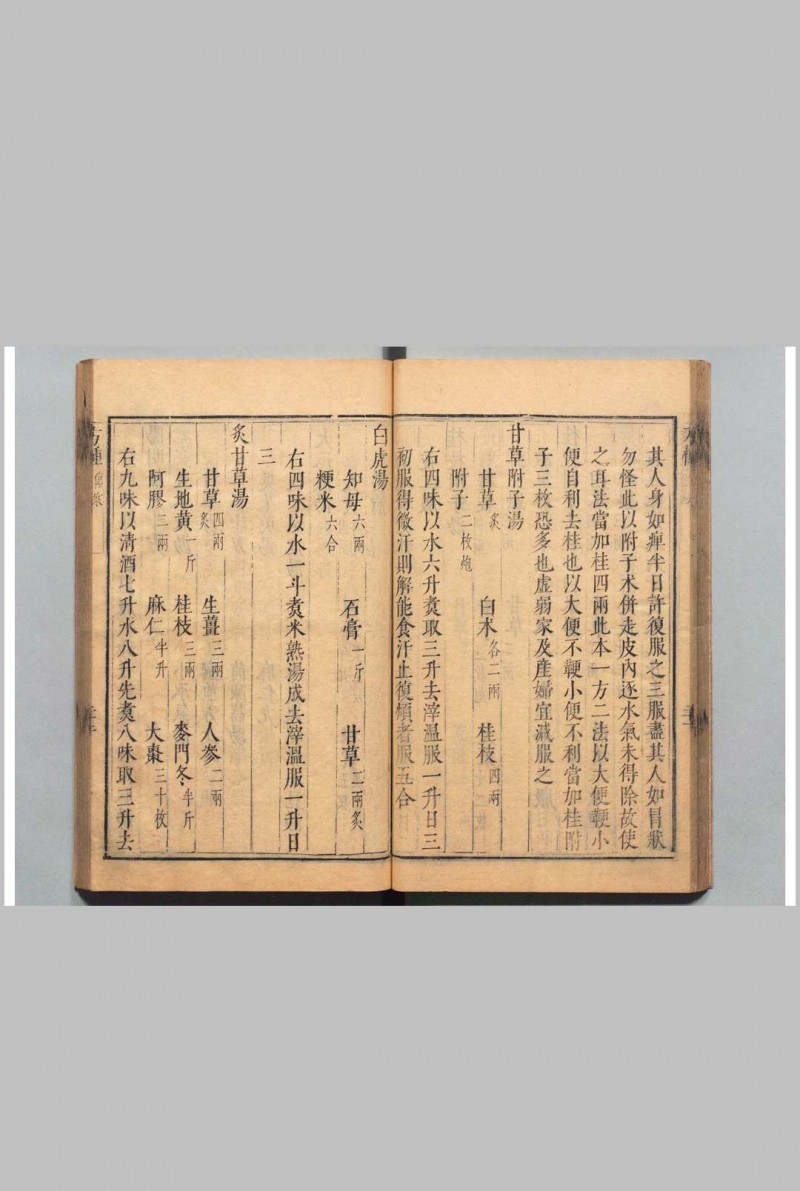 其人身如痺半日許復服之三服盡其人如冒狀
勿怪此以附子术併走皮內逐水氣未得除故使
之耳法當加桂四兩此本一方二法以大便鞕小
便自利去桂也以大便不鞕小便不利當加桂附
子三枚恐多也虛弱家及產婦宜減服之
甘草附子湯
甘草炙 白术各二兩 桂枝四兩
附子二枚炮
右四味以水六升煑取三升去滓溫服一升日三
初服得微汗則解能食汗止復煩者服五合
白虎湯
知母六兩 石膏一斤 甘草二兩炙
粳米六合
右四味以水一斗煑米熟湯成去滓溫服一升日
三
炙甘草湯
甘草四兩炙 生薑三兩 人參二兩
生地黃一斤 桂枝三兩 麥門冬半斤
阿膠二兩 麻仁半升 大棗三十枚
右九味以清酒七升水八升先煑八味取三升去